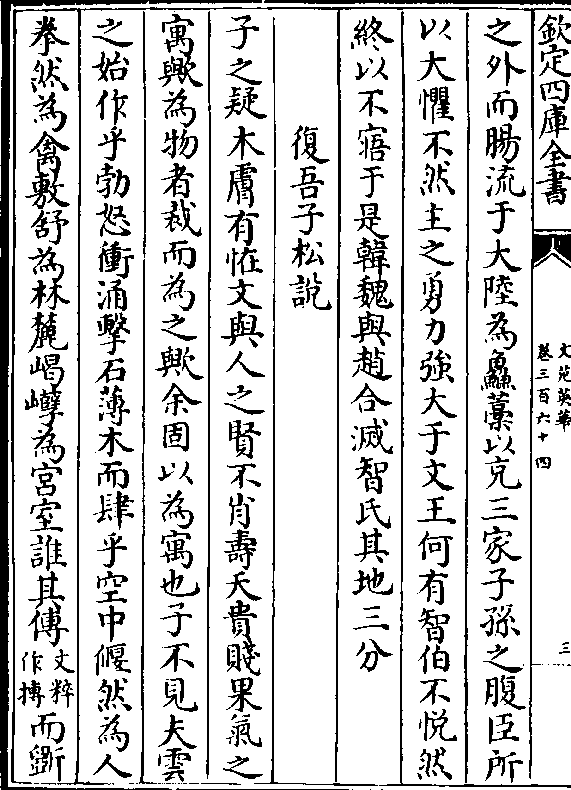 欽定四庫全書
文苑英華
卷三百六十四
三
之外而腸流于大陸為鱻薧以克三家子孫之腹臣所
以大懼不然主之勇力強大于文王何有智伯不悦然
終以不寤于是韓魏與趙合滅智氏其地三分
復吾子松說
子之疑木膚有怪文與人之賢不肖壽夭貴賤果氣之
寓歟為物者裁而為之歟余固以為寓也子不見夫雲
之始作乎勃怒衝涌擊石薄木而肆乎空中偃然為人
拳然為禽敷舒為林麓嵑㠔為宮室誰其傅文粹作摶而斵